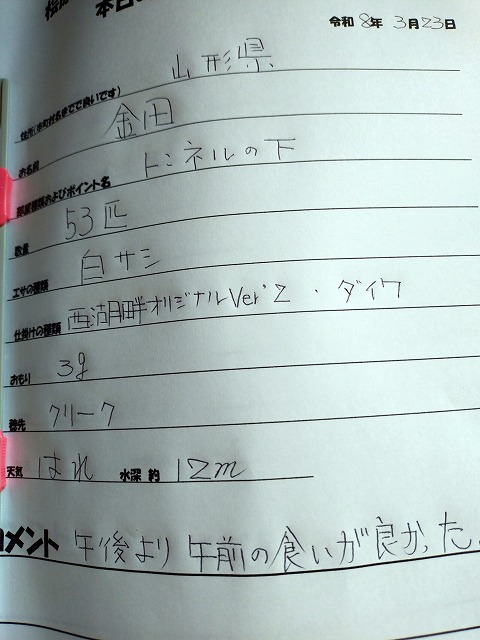 本日
令和 8年 3月23日
住所(市町村名までで良いです) 山形県
お名前 金田
部屋種類およびポイント名 トンネルの下
数量 53匹
エサの種類 白サシ
仕掛けの種類 西湖畔オリジナルVer'2 ・ ダイワ
おもり 3g
穂先 クリーク
天気 はれ 水深 約 12m
コメント 午後より午前の食いが良かった。